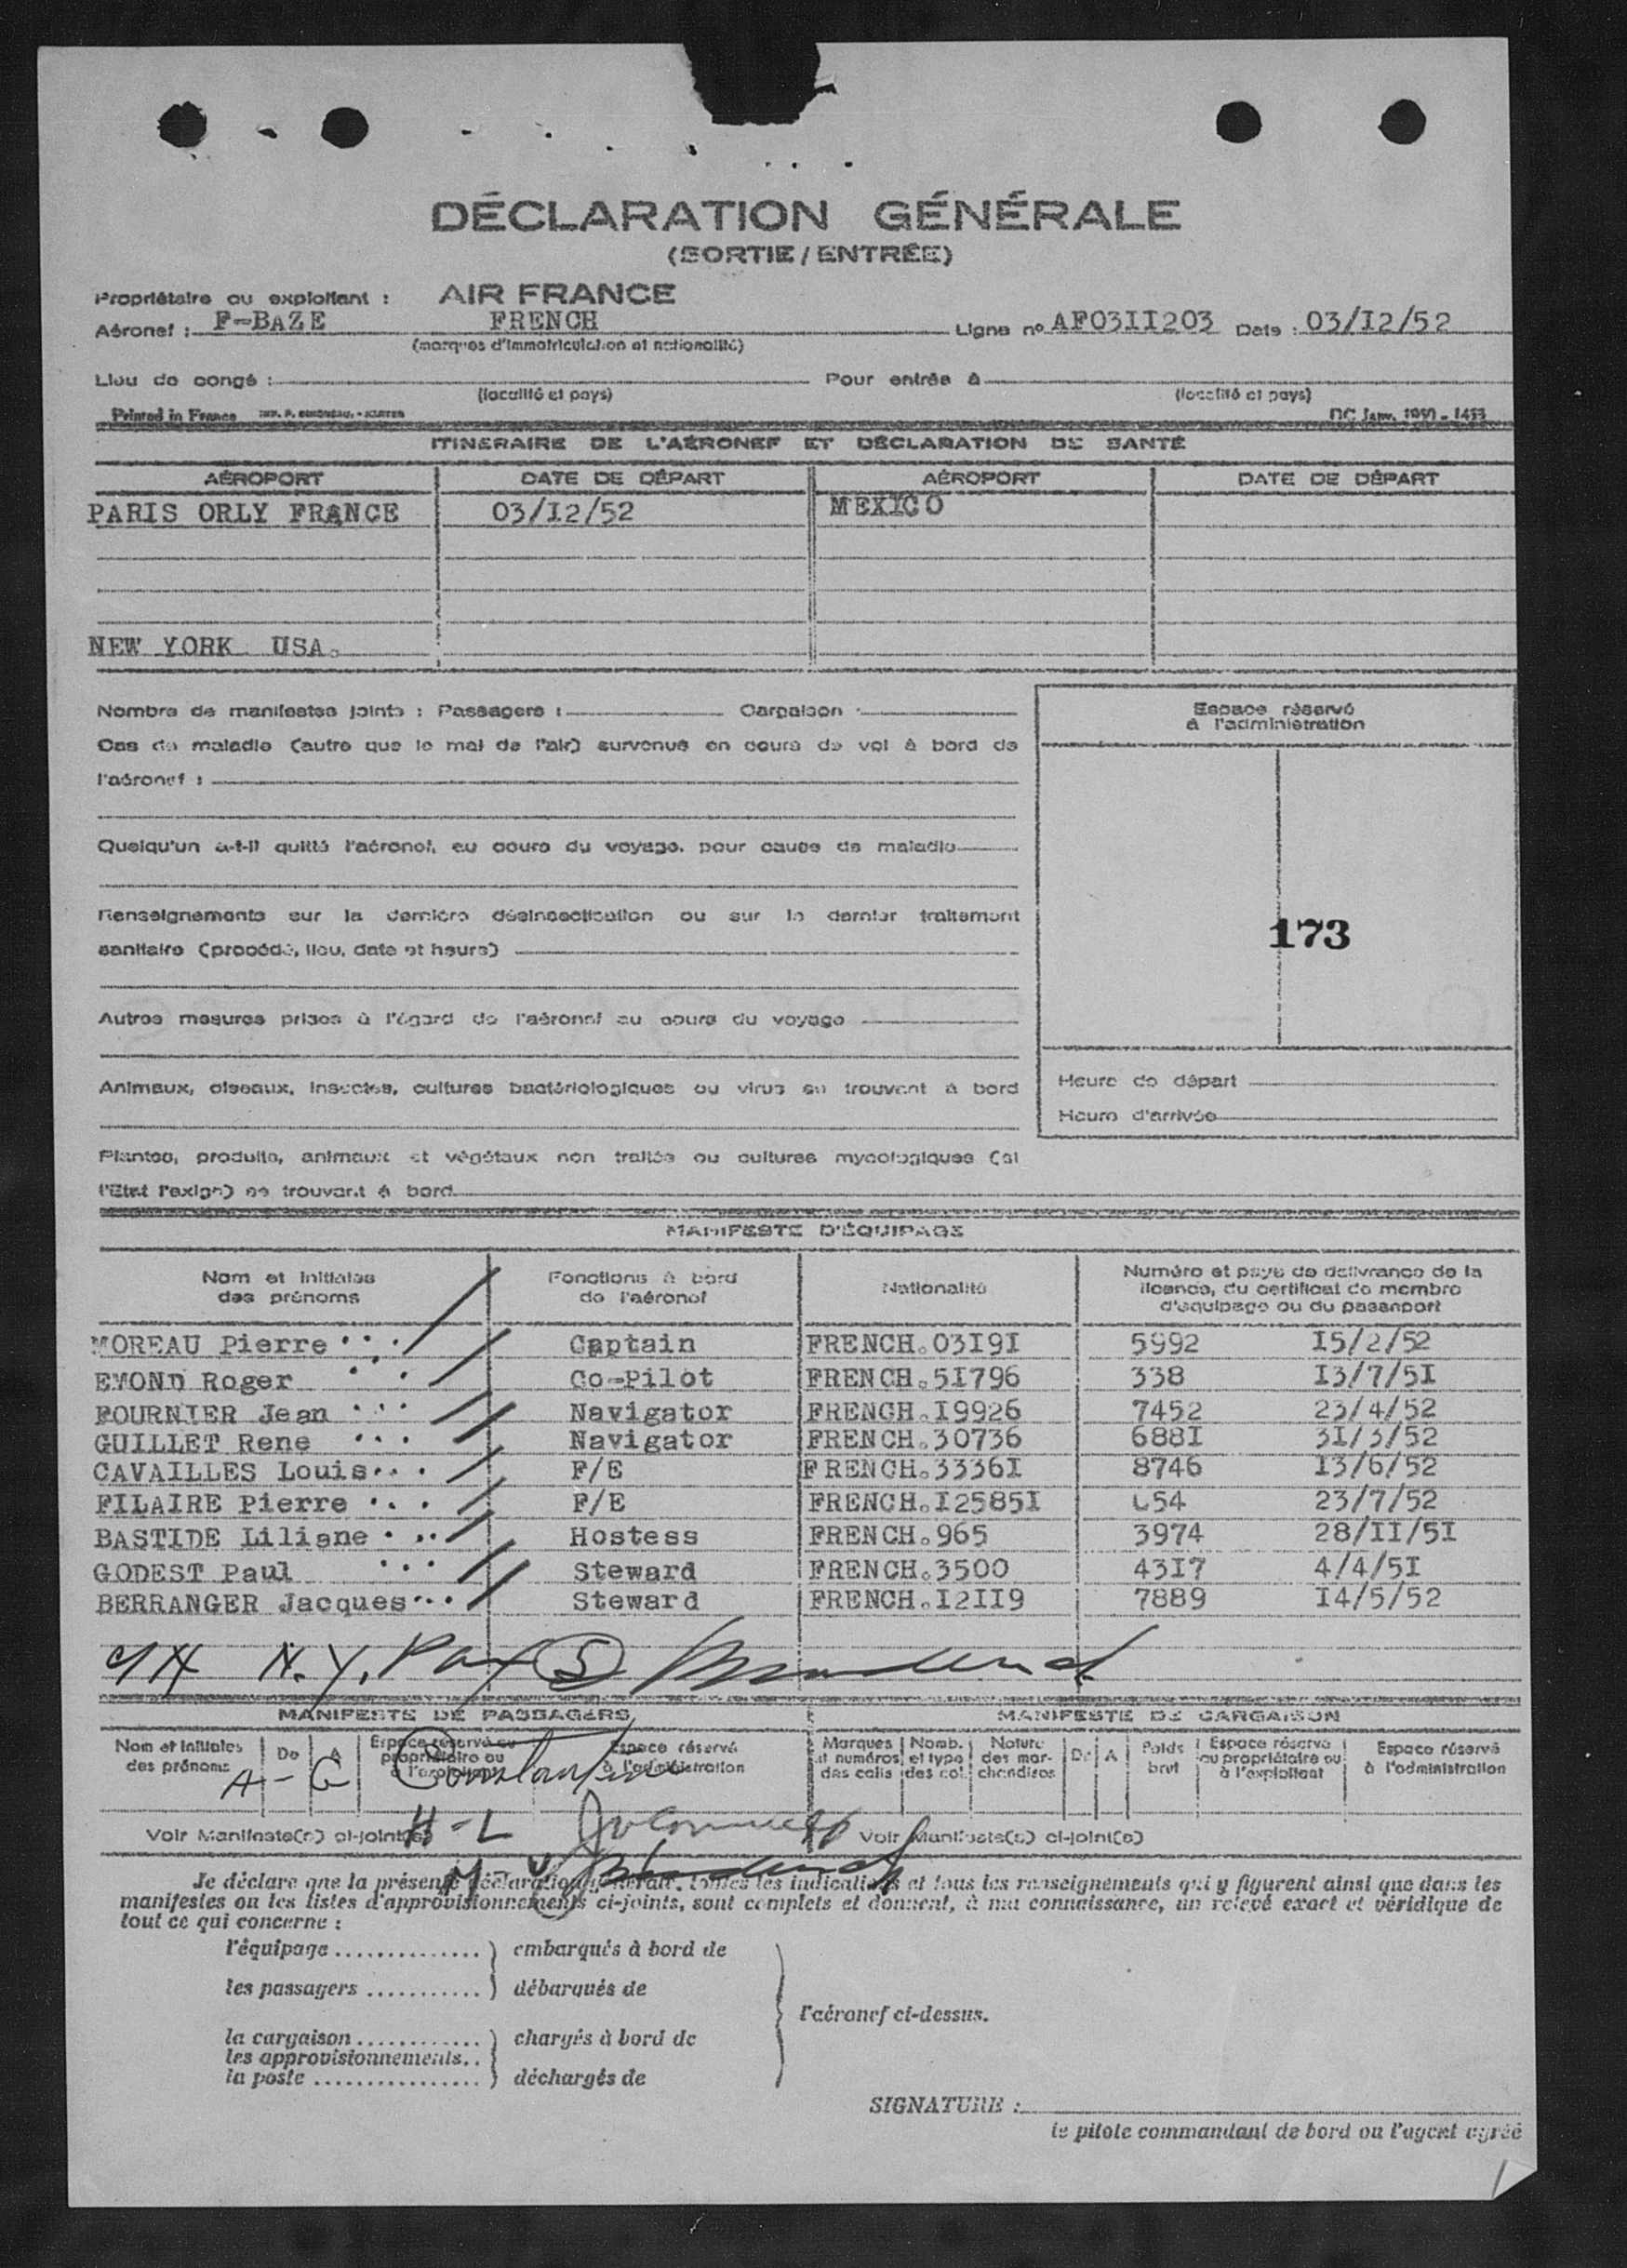 DÉCLARATION GÉNÉRALE
(SORTIE / ENTRÉE)
Propriétaire ou exploitant : AIR FRANCE
Aéronef : F-BAZE FRENCH Ligne nº AF03II203 Date : 03/I2/52
(marques d'immatriculation et nationalité)
Lieu de congé : Pour entrée à
(localité et pays) (localité et pays)
Printed in France DC Janv. 1950 - 1453
ITINERAIRE DE L'AÉRONEF ET DÉCLARATION DE SANTÉ
AÉROPORT DATE DE DÉPART AÉROPORT DATE DE DÉPART
PARIS ORLY FRANCE 03/I2/52 MEXICO
NEW YORK USA.
Nombre de manifestes joints : Passagers : Cargaison :
Espace réservé
à l'administration
Cas de maladie (autre que le mal de l'air) survenus en cours de vol à bord de
l'aéronef :
Quelqu'un a-t-il quitté l'aéronef, au cours du voyage, pour cause de maladie
Renseignements sur la dernière désinsectisation ou sur le dernier traitement
sanitaire (procédé, lieu, date et heure)
173
Autres mesures prises à l'égard de l'aéronef au cours du voyage
Animaux, oiseaux, insectes, cultures bactériologiques ou virus se trouvant à bord
Heure de départ
Heure d'arrivée
Plantes, produits, animaux et végétaux non traités ou cultures mycologiques (si
l'Etat l'exige) se trouvant à bord
MANIFESTE D'ÉQUIPAGE
Nom et initiales des prénoms Fonctions à bord de l'aéronef Nationalité Numéro et pays de délivrance de la licence, du certificat de membre d'équipage ou du passeport
MOREAU Pierre Captain FRENCH.03I9I 5992 I5/2/52
EMOND Roger Co-Pilot FRENCH.5I796 338 I3/7/5I
FOURNIER Jean Navigator FRENCH.I9926 7452 23/4/52
GUILLET Rene Navigator FRENCH.30736 688I 3I/3/52
CAVAILLES Louis F/E FRENCH.3336I 8746 I3/6/52
FILAIRE Pierre F/E FRENCH.I2585I 654 23/7/52
BASTIDE Liliane Hostess FRENCH.965 3974 28/II/5I
GODEST Paul Steward FRENCH.3500 43I7 4/4/5I
BERRANGER Jacques Steward FRENCH.I2II9 7889 I4/5/52
N.Y. Pax (5)
MANIFESTE DE PASSAGERS MANIFESTE DE CARGAISON
Nom et initiales des prénoms De A Espace réservé au propriétaire ou à l'exploitant Espace réservé à l'administration Marques et numéros des colis Nomb. et type des col. Nature des mar- chandises De A Poids brut Espace réservé au propriétaire ou à l'exploitant Espace réservé à l'administration
A - G Constantine
H - L
Voir Manifeste(s) ci-joint(s) Voir Manifeste(s) ci-joint(s)
Je déclare que la présente déclaration générale, toutes les indications et tous les renseignements qui y figurent ainsi que dans les
manifestes ou les listes d'approvisionnements ci-joints, sont complets et donnent, à ma connaissance, un relevé exact et véridique de
tout ce qui concerne :
l'équipage .............. ) embarqués à bord de
les passagers ........... ) débarqués de
l'aéronef ci-dessus.
la cargaison ............ ) chargés à bord de
les approvisionnements..
la poste ................ ) déchargés de
SIGNATURE :
le pilote commandant de bord ou l'agent agréé